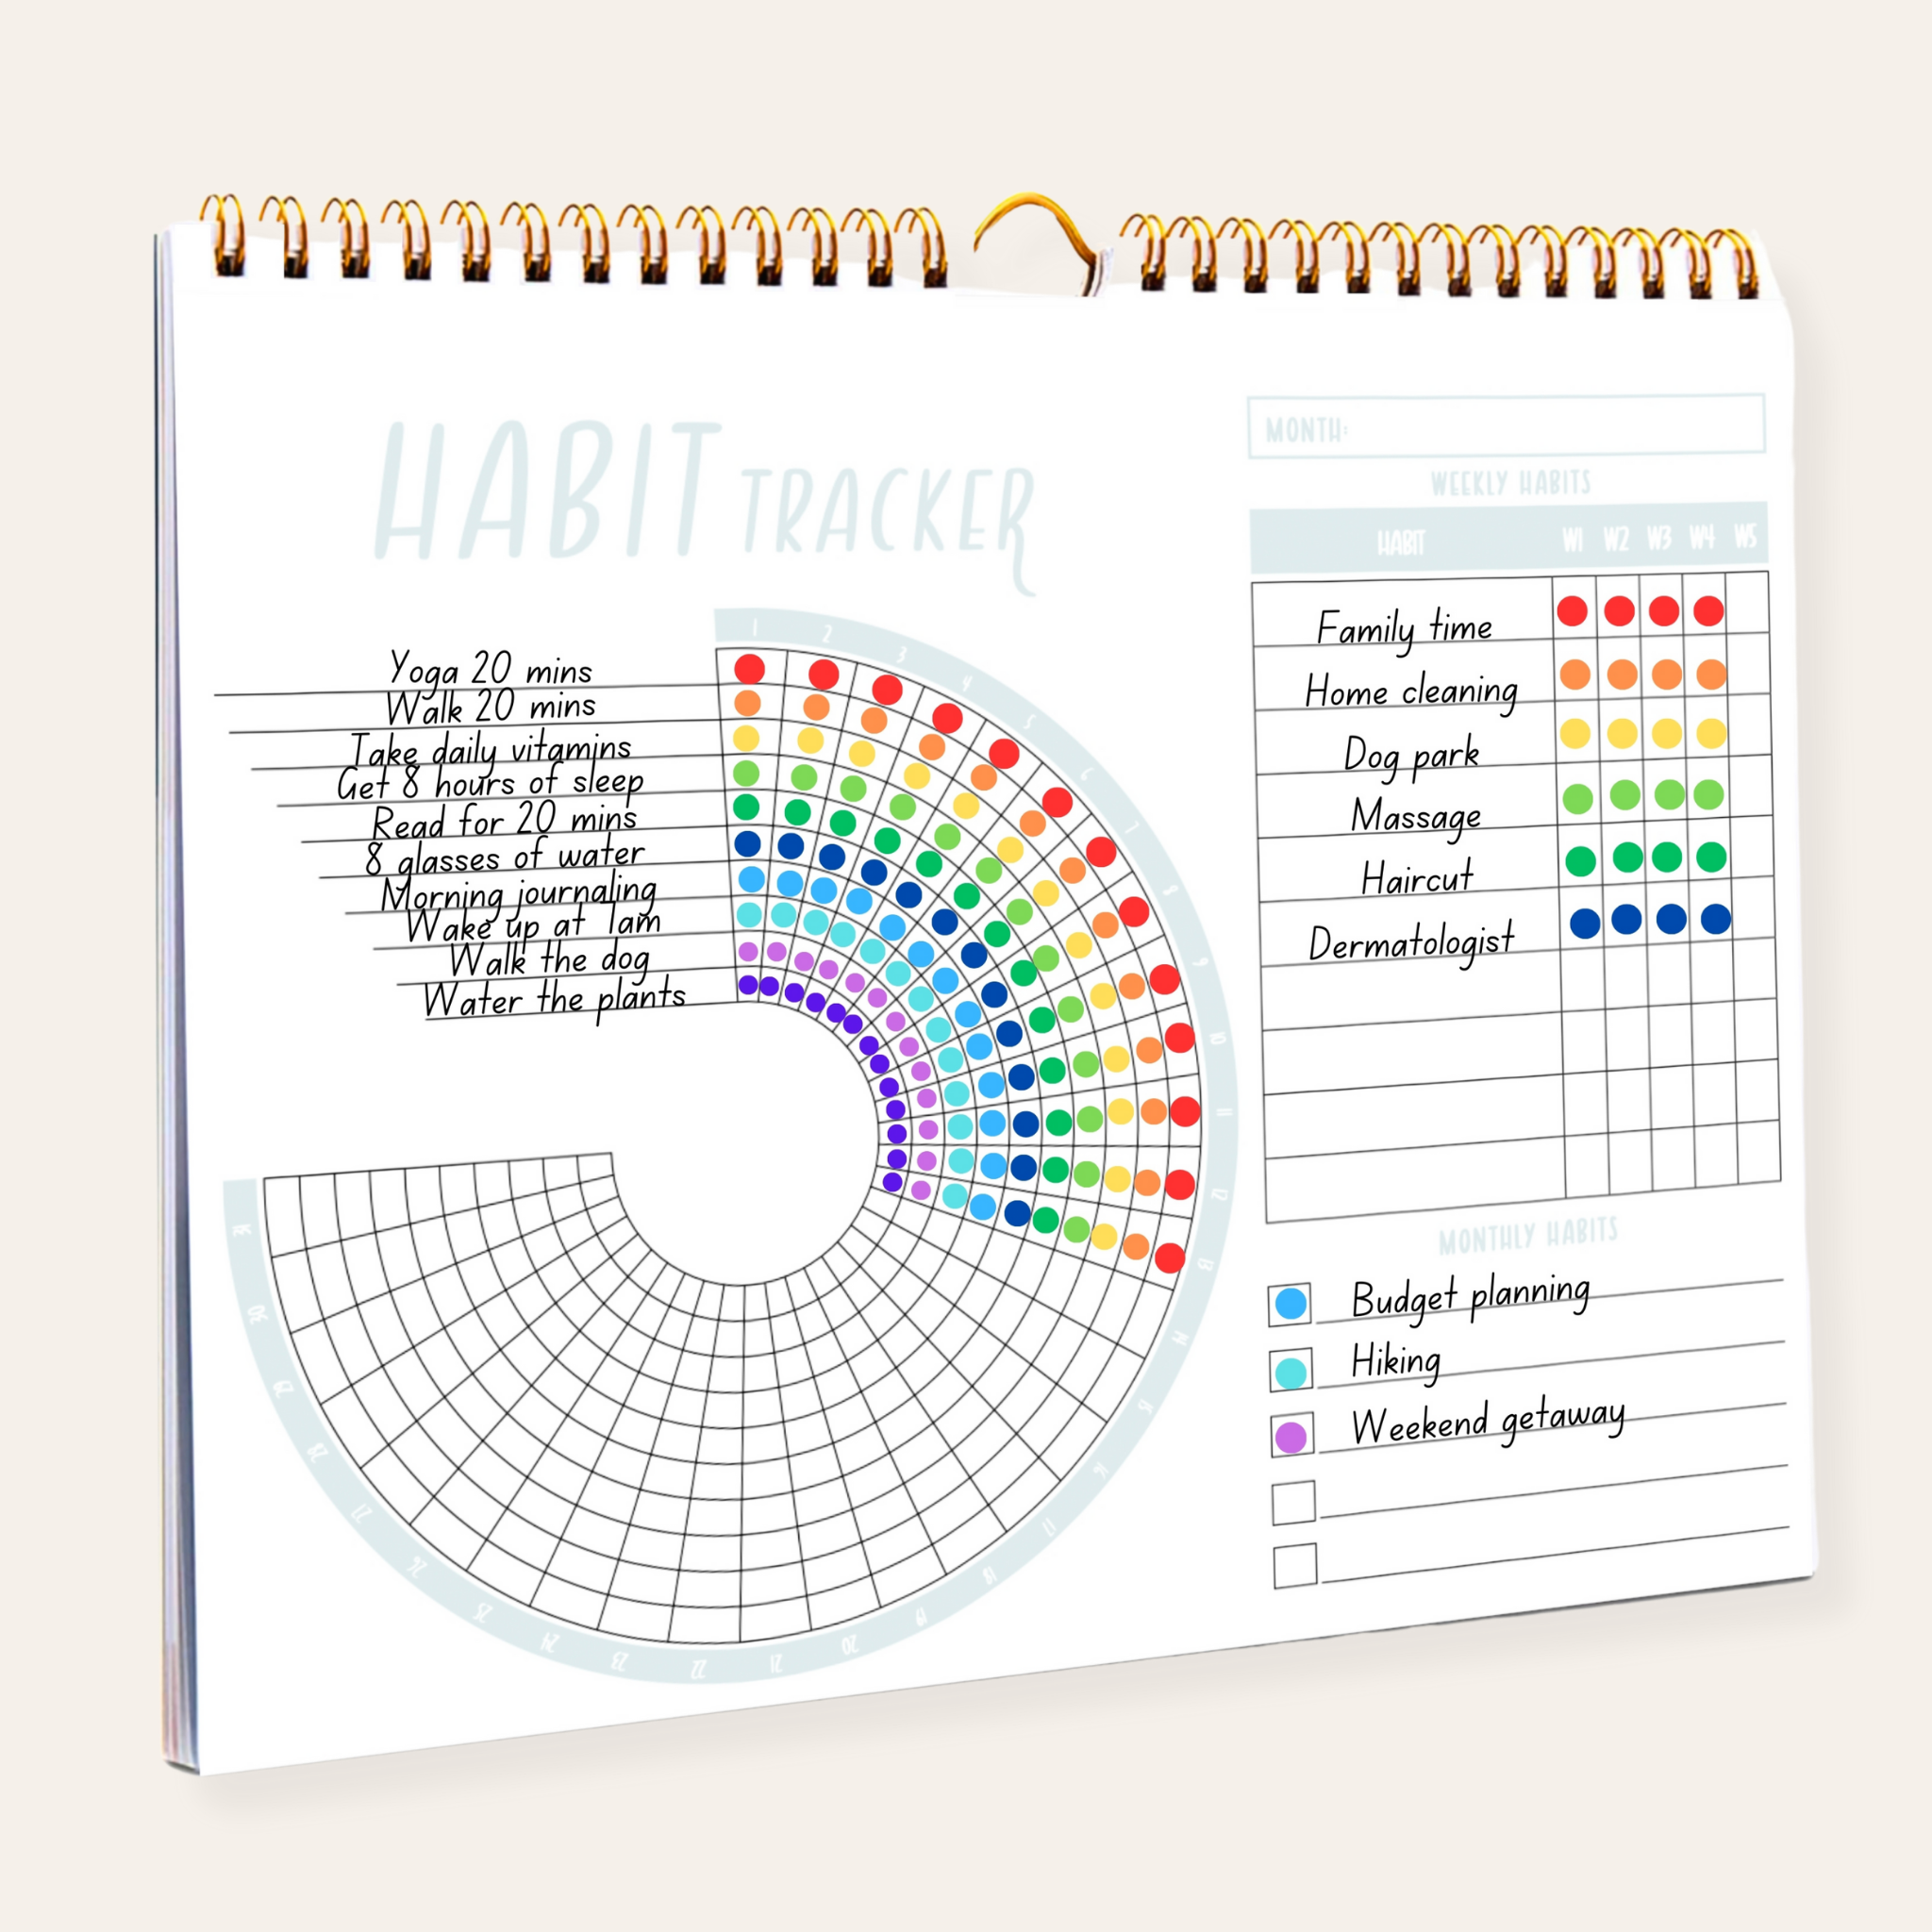 HABIT TRACKER
Yoga 20 mins
Walk 20 mins
Take daily vitamins
Get 8 hours of sleep
Read for 20 mins
8 glasses of water
Morning journaling
Wake up at 7am
Walk the dog
Water the plants
1
2
3
4
5
6
7
8
9
10
11
12
13
14
15
16
17
18
19
20
21
22
23
24
25
26
27
28
29
30
MONTH:
WEEKLY HABITS
HABIT W1 W2 W3 W4 W5
Family time
Home cleaning
Dog park
Massage
Haircut
Dermatologist
MONTHLY HABITS
Budget planning
Hiking
Weekend getaway